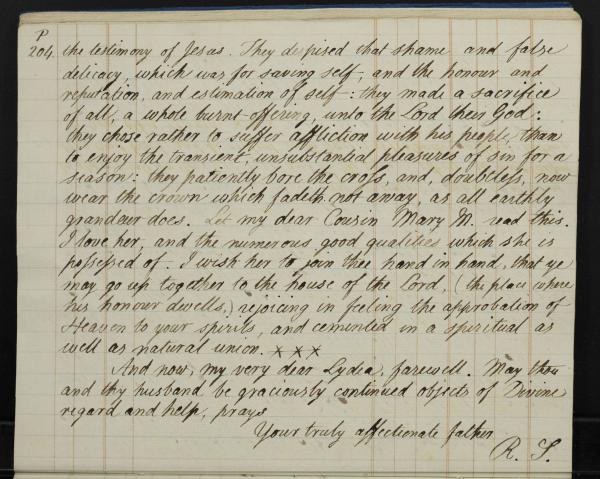 P
204. the testimony of Jesus. They despised that shame and false
delicacy, which was for saving self, and the honour and
reputation, and estimation of self: they made a sacrifice
of all, a whole burnt offering, unto the Lord their God:
they chose rather to suffer affliction with his people, than
to enjoy the transient, unsubstantial pleasures of sin for a
season: they patiently bore the cross, and, doubtless, now
wear the crown which fadeth not away, as all earthly
grandeur does. Let my dear Cousin Mary M. read this.
I love her, and the numerous good qualities which she is
possessed of. I wish her to join thee hand in hand, that ye
may go up together to the house of the Lord, (the place where
his honour dwells,) rejoicing in feeling the approbation of
Heaven to your spirits, and cemented in a spiritual as
well as natural union. x x x
And now, my very dear Lydia, farewell. May thou
and thy husband be graciously continued objects of Divine
regard and help, prays
Your truly affectionate father
R. S.